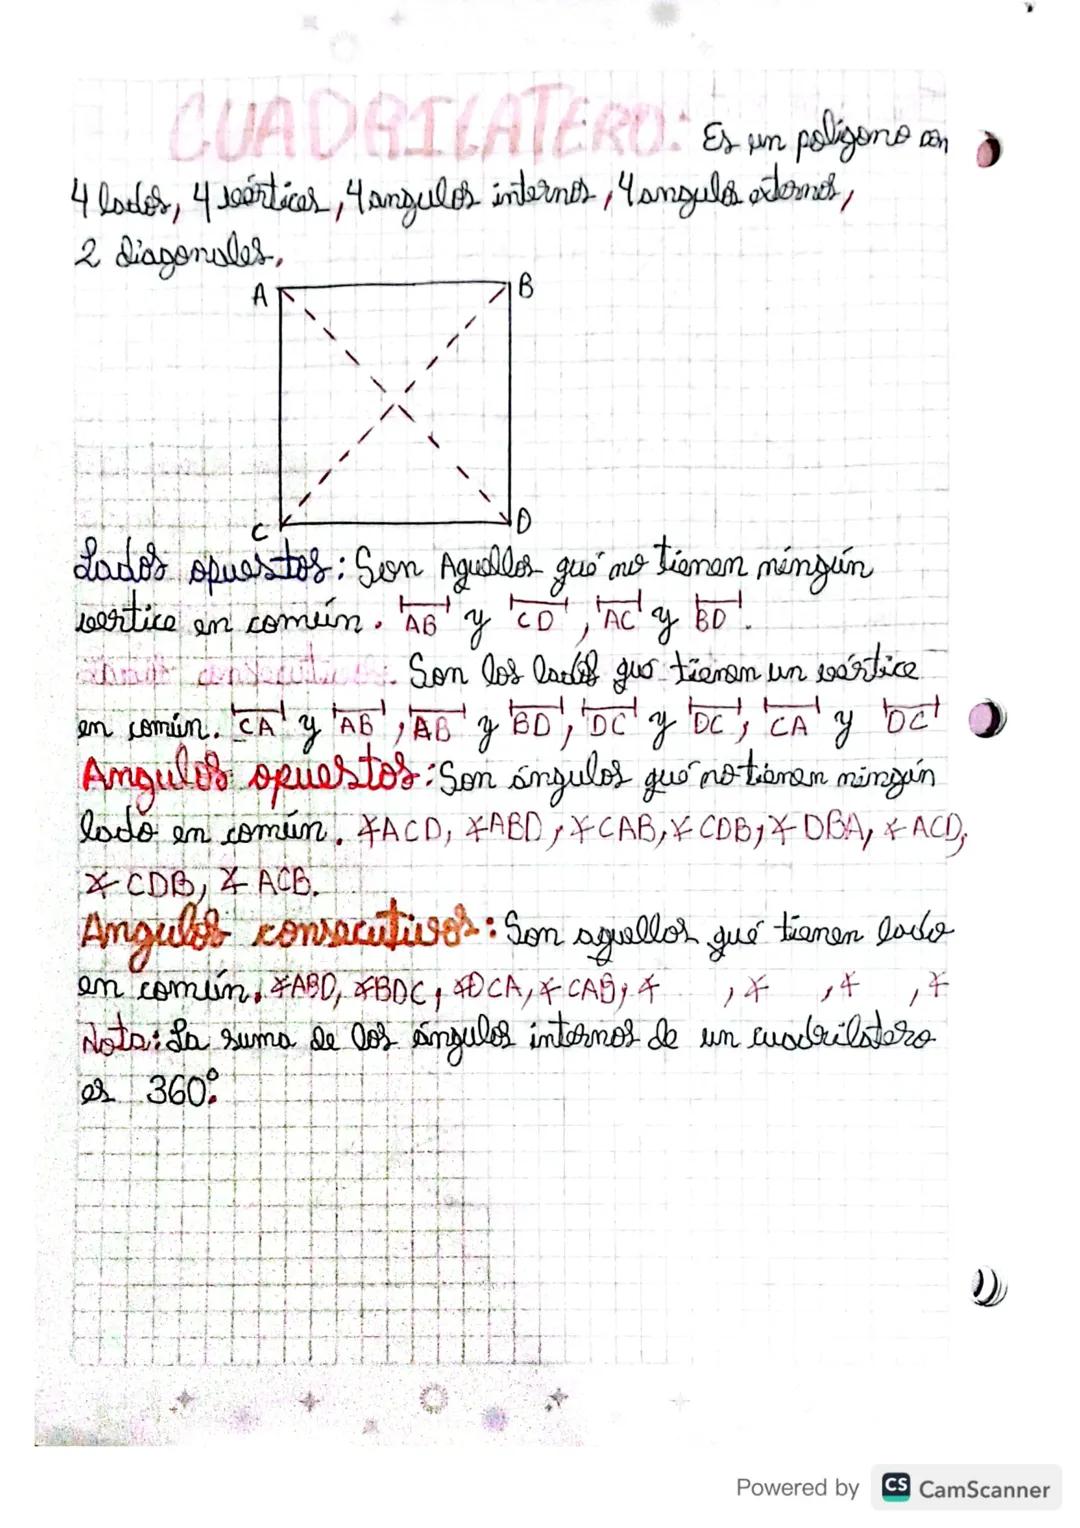 CUADRILATERO: Es un poligono con
4 lados, 4 vértices, 4 angulos internos, 4 angulos externos,
2 diagonales.
A B
C D
Lados opuestos: Son Aquellos qué no tienen ningún
vertice en común. AB y CD, AC y BD.
consecutivos: Son los lados que tienen un vértice
en común. CA y AB, AB y BD, DC y DC, CA y DC
Angulos opuestos: Son ángulos qué no tienen ningún
lado en común. ∡ACD, ∡ABD, ∡CAB, ∡CDB, ∡DBA, ∡ACD,
∡CDB, ∡ACB.
Angulos consecutivos: Son aquellos qué tienen lado
en común. ∡ABD, ∡BDC, ∡DCA, ∡CAB, ∡ , ∡ , ∡ , ∡
Nota: La suma de los ángulos internos de un cuadrilatero
es 360°.
Powered by CS CamScanner